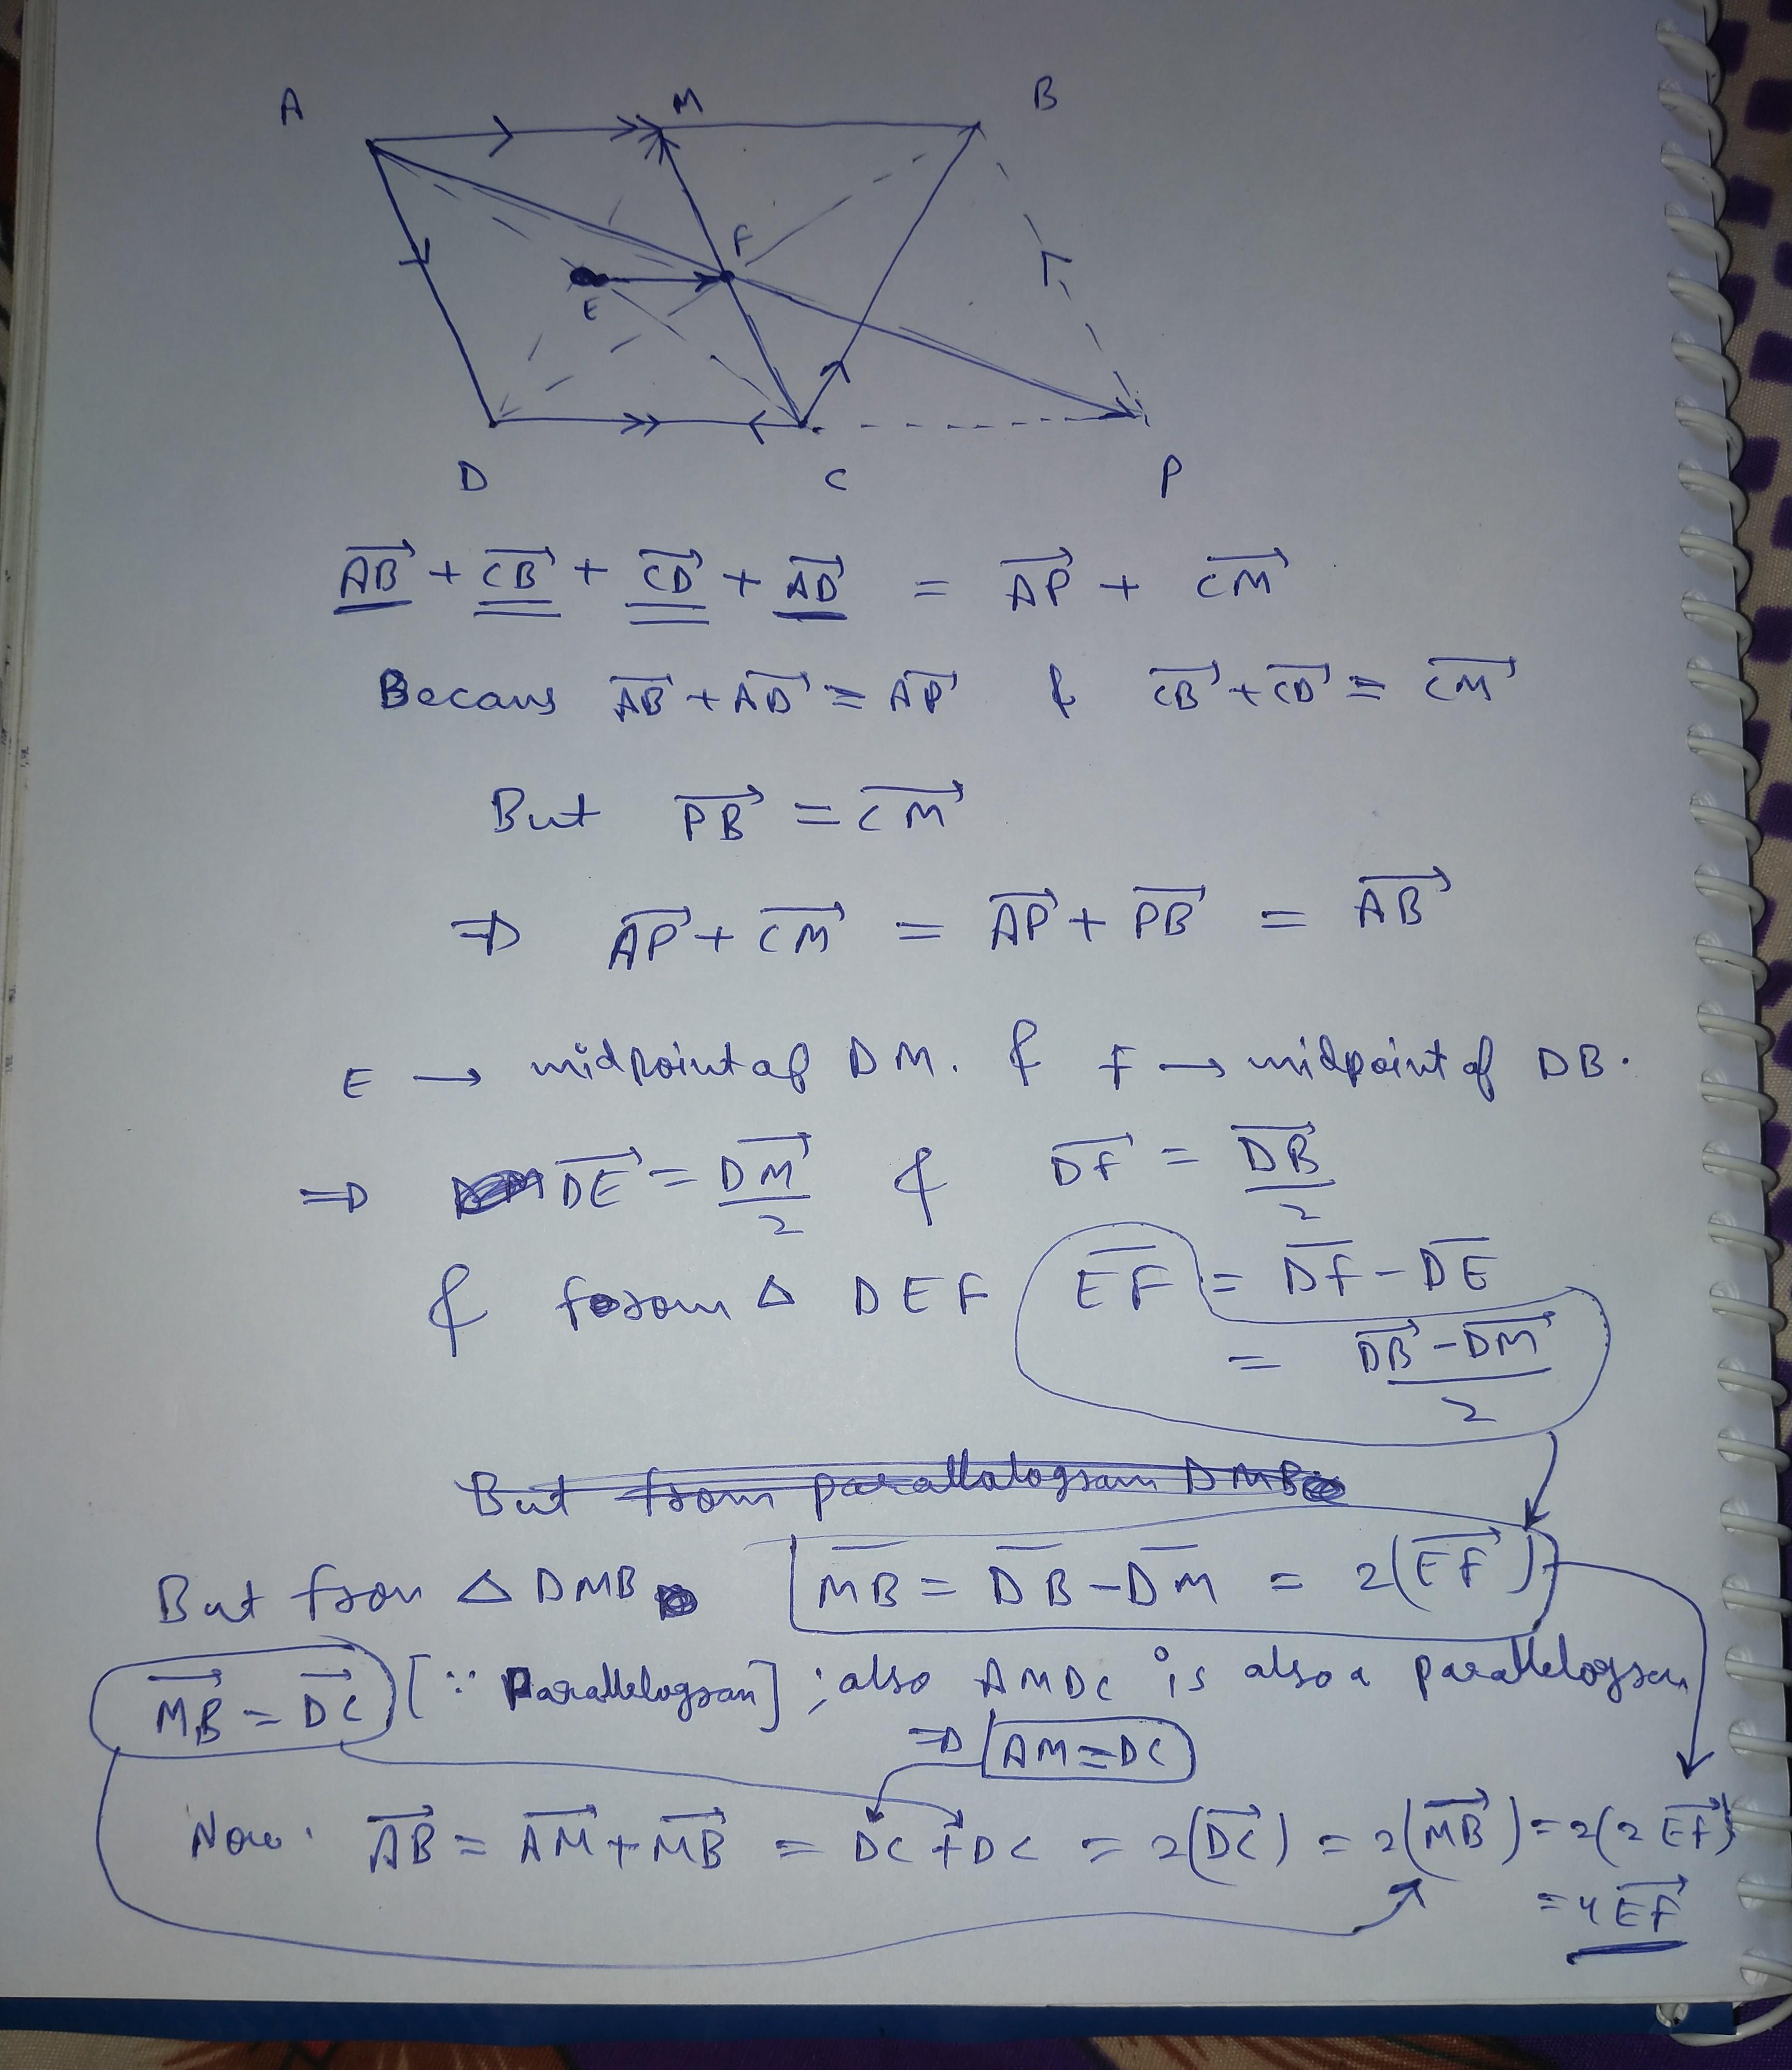 A M B
F
E
D C P
AB + CB + CD + AD = AP + CM
Becaus AB + AD = AP & CB + CD = CM
But PB = CM
⇒ AP + CM = AP + PB = AB
E → midpoint of DM. & F → midpoint of DB.
⇒ DE = DM/2 & DF = DB/2
& from △ DEF EF = DF - DE
= DB - DM / 2
But from parallalogram DMB
But from △ DMB MB = DB - DM = 2(EF)
MB = DC [∵ Parallelogram] ; also AMDC is also a parallelogram
⇒ AM = DC
Now. AB = AM + MB = DC + DC = 2(DC) = 2(MB) = 2(2 EF)
= 4 EF